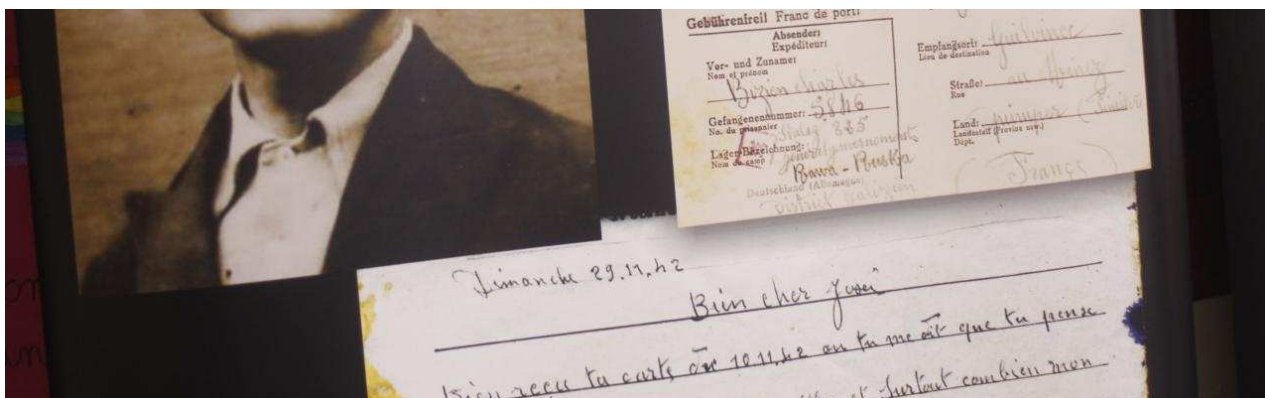 Gebührenfrei! Franc de port!
Absender:
Expéditeur:
Vor- und Zuname:
Nom et prénom
Charles
Gefangenennummer: 5846
No. du prisonnier
Stalag 325
Lager-Bezeichnung:
Nom du camp
Rawa-Ruska
Deutschland (Allemagne)
District
Empfangsort: Guilvinec
Lieu de destination
Straße:
Rue
Land:
Landesteil (Provinz usw.)
Dépt.
France
Dimanche 29.11.42
Bien cher José
Bien reçu ta carte du 10.11.42 ou tu me dit que tu pense
et surtout combien mon